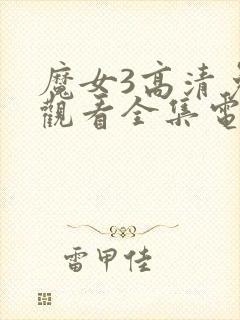 魔女3高清
觀看全集電
雷甲佳